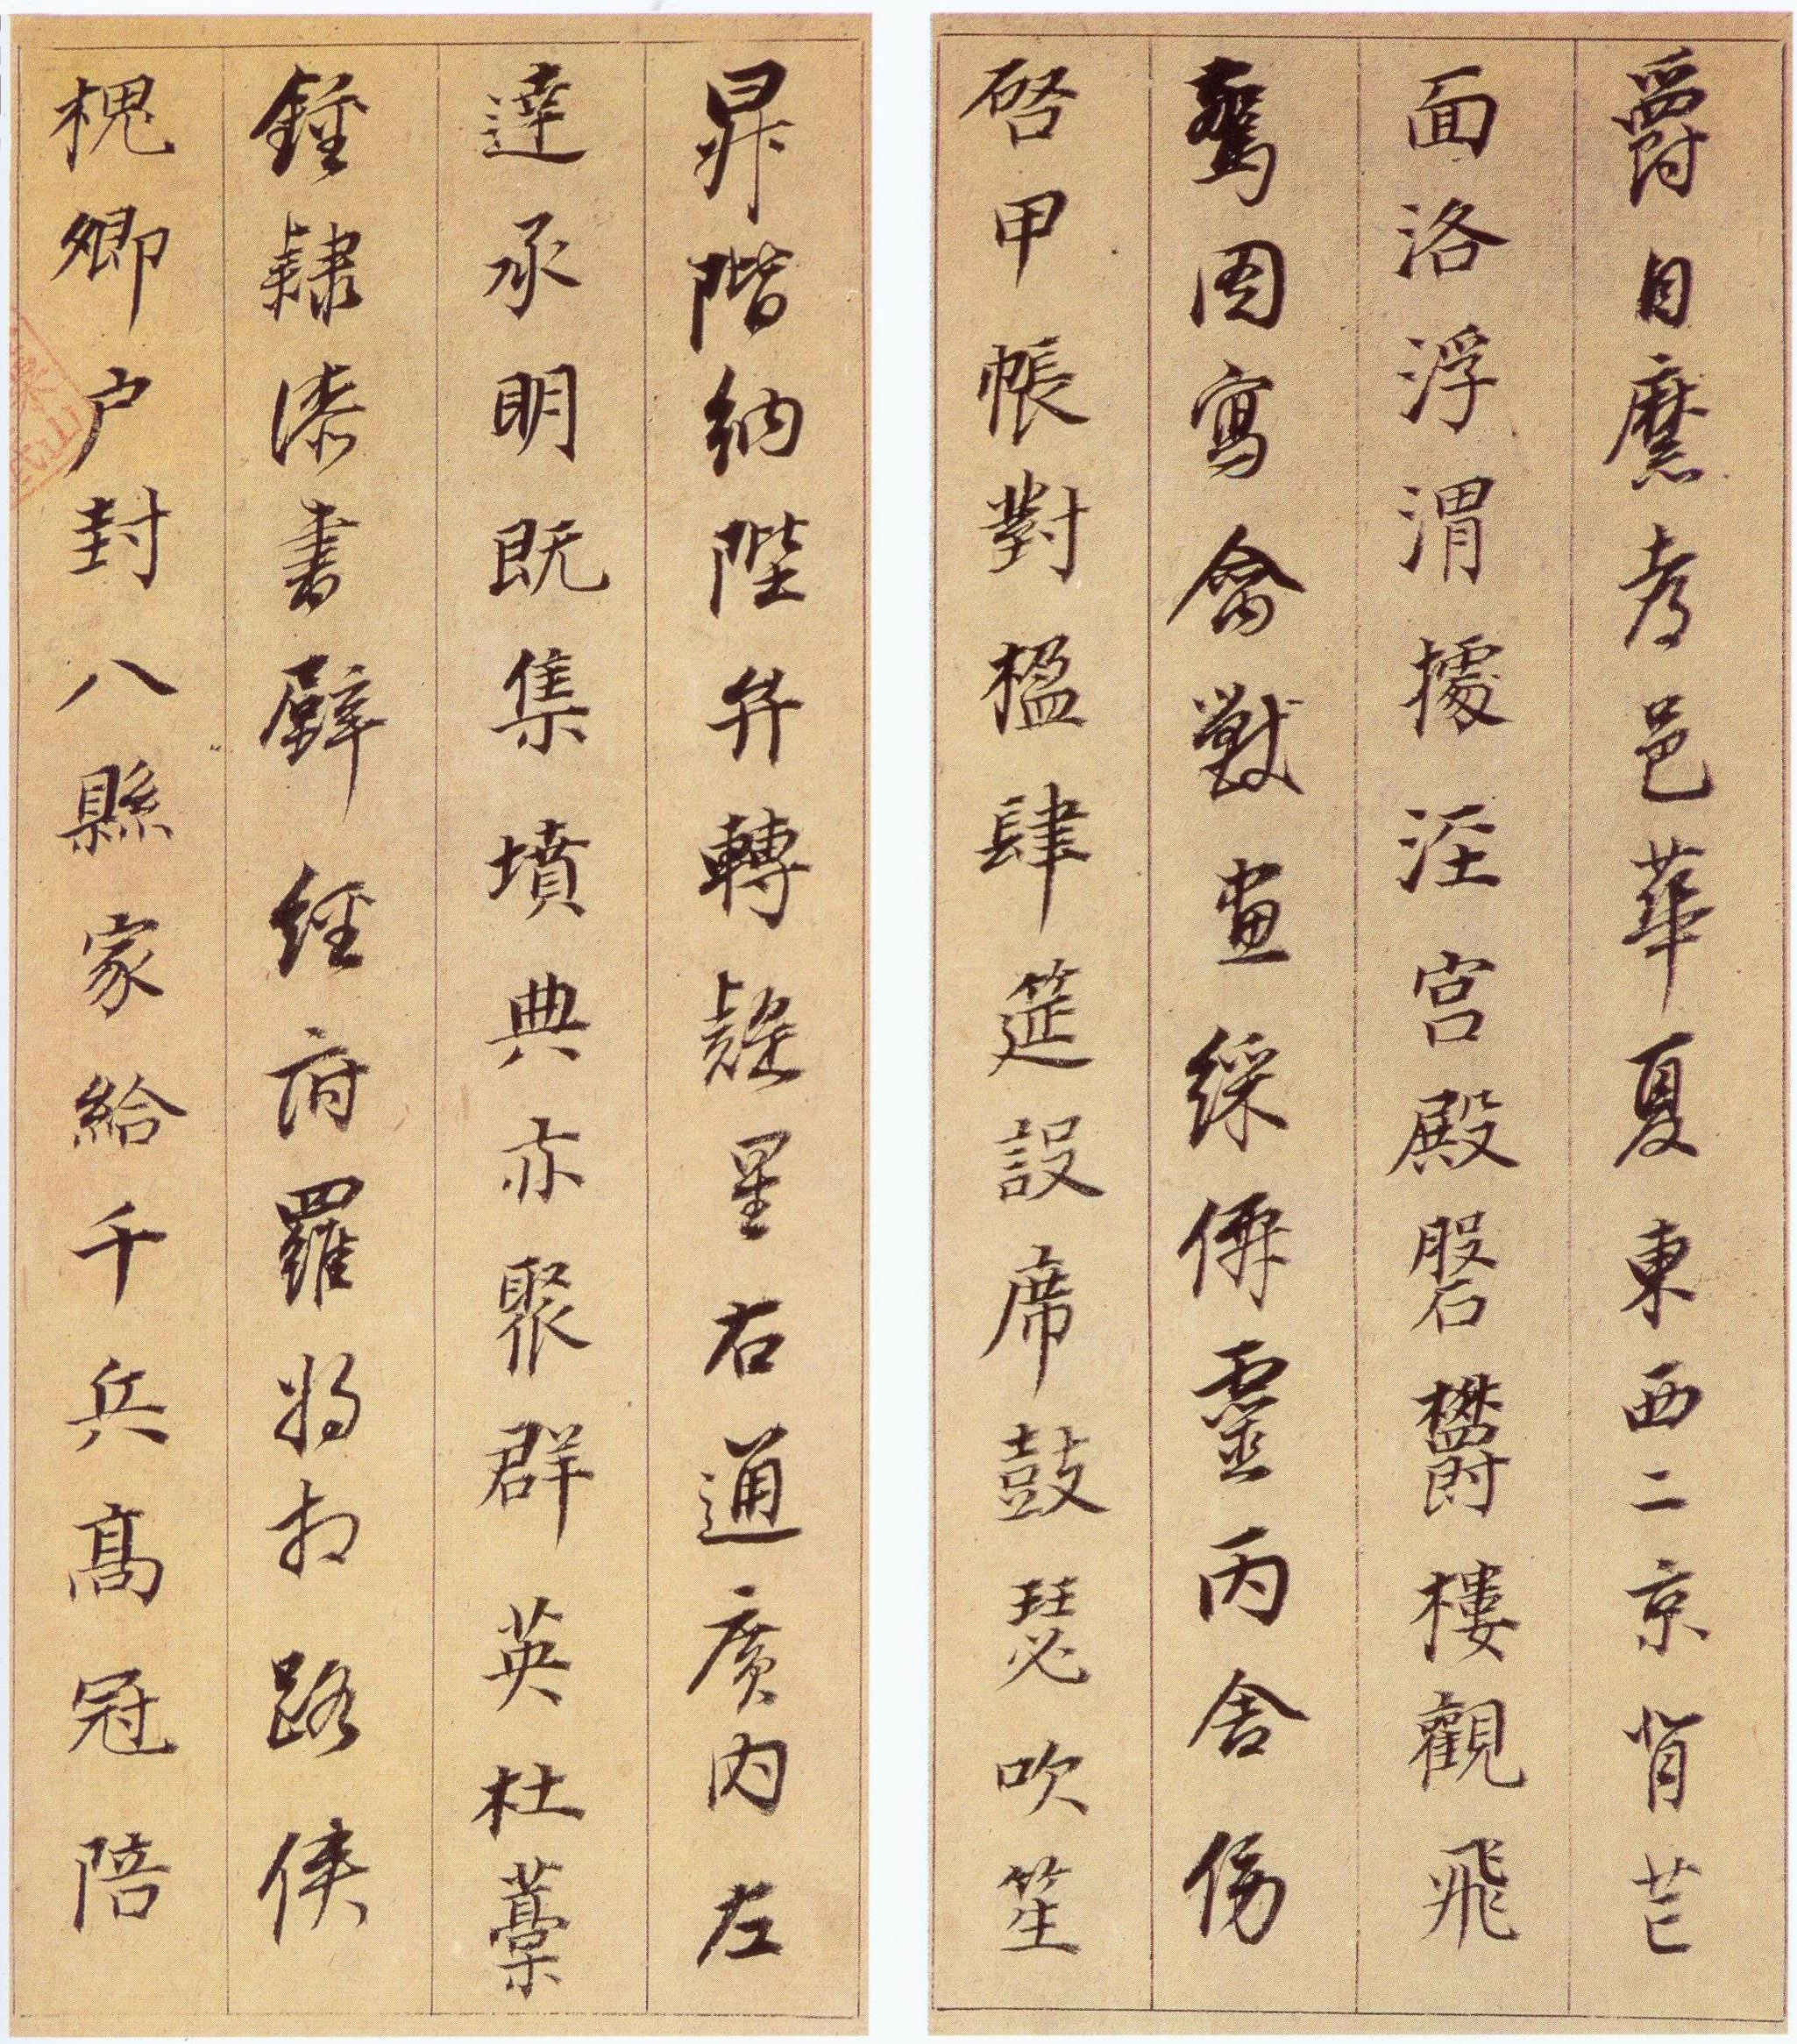 爵自縻都邑華夏東西二京背芒
面洛浮渭據涇宮殿磐鬱樓觀飛
驚圖寫禽獸畫綵僊靈丙舍傍
啓甲帳對楹肆筵設席鼓瑟吹笙
昇階納陛弁轉疑星右通廣内左
達承明既集墳典亦聚群英杜藁
鍾隸漆書壁經府羅將相路俠
槐卿户封八縣家給千兵髙冠陪